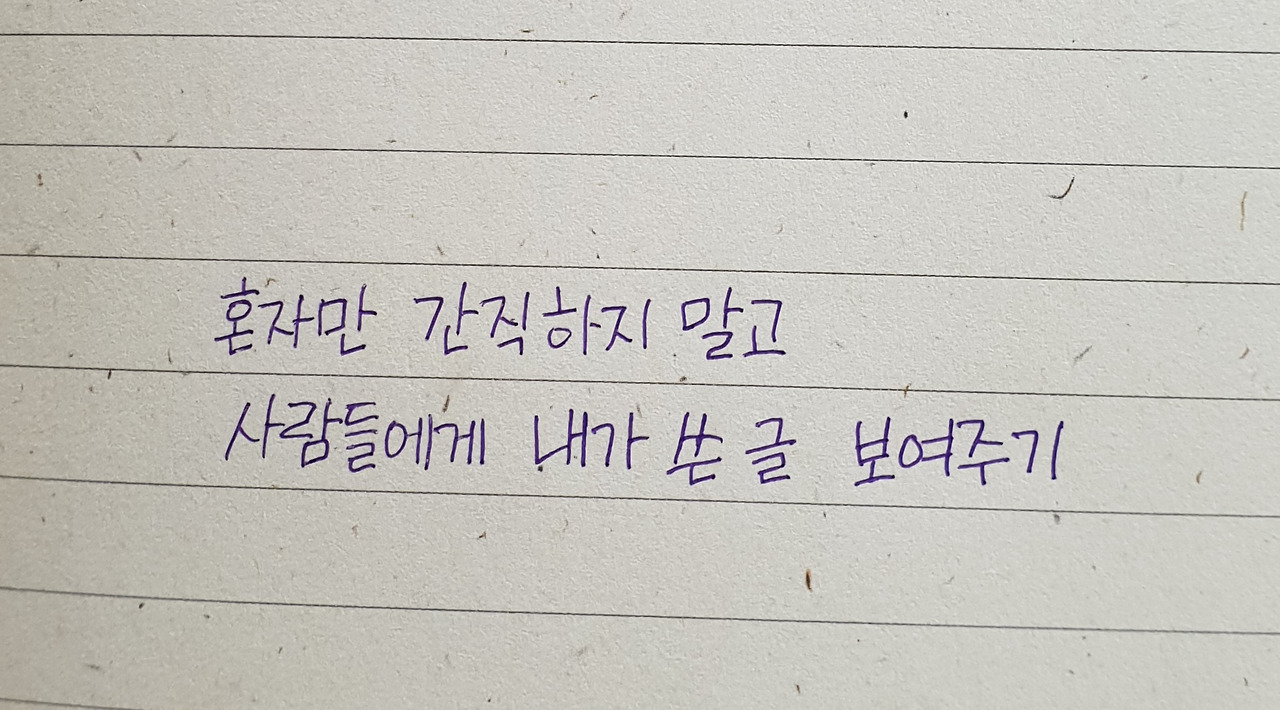 혼자만 간직하지 말고
사람들에게 내가 쓴 글 보여주기